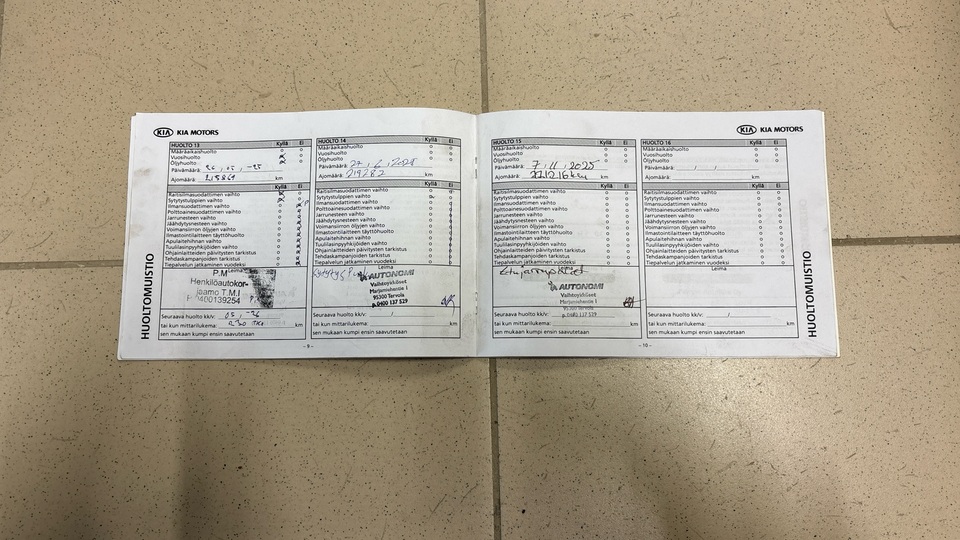 KIA KIA MOTORS
HUOLTO 13 Kyllä Ei
Määräaikaishuolto
Vuosihuolto
Öljyhuolto
Päivämäärä:
Ajomäärä: km
Kyllä Ei
Raitisilmasuodattimen vaihto
Sytytystulppien vaihto
Ilmansuodattimen vaihto
Polttoainesuodattimen vaihto
Jarrunesteen vaihto
Jäähdytysnesteen vaihto
Voimansiirron öljyjen vaihto
Ilmastointilaitteen täyttöhuolto
Apulaitehihnan vaihto
Tuulilasinpyyhkijöiden vaihto
Ohjainlaitteiden päivitysten tarkistus
Tehdaskampanjoiden tarkistus
Tiepalvelun jatkaminen vuodeksi
Leima
P.M
Henkilöautokor-
jaamo T.M.I
0400139254
Seuraava huolto kk/v:
tai kun mittarilukema: km
sen mukaan kumpi ensin saavutetaan
HUOLTO 14 Kyllä Ei
Määräaikaishuolto
Vuosihuolto
Öljyhuolto
Päivämäärä:
Ajomäärä: 219282 km
Kyllä Ei
Raitisilmasuodattimen vaihto
Sytytystulppien vaihto
Ilmansuodattimen vaihto
Polttoainesuodattimen vaihto
Jarrunesteen vaihto
Jäähdytysnesteen vaihto
Voimansiirron öljyjen vaihto
Ilmastointilaitteen täyttöhuolto
Apulaitehihnan vaihto
Tuulilasinpyyhkijöiden vaihto
Ohjainlaitteiden päivitysten tarkistus
Tehdaskampanjoiden tarkistus
Tiepalvelun jatkaminen vuodeksi
Leima
AUTONOMI
Vaihtopykälieet
Marjamiehentie 1
95300 Tervola
p.0400 137 529
Seuraava huolto kk/v:
tai kun mittarilukema: km
sen mukaan kumpi ensin saavutetaan
HUOLTOMUISTIO
- 9 -
KIA KIA MOTORS
HUOLTO 15 Kyllä Ei
Määräaikaishuolto
Vuosihuolto
Öljyhuolto
Päivämäärä: 7.11.2025
Ajomäärä: km
Kyllä Ei
Raitisilmasuodattimen vaihto
Sytytystulppien vaihto
Ilmansuodattimen vaihto
Polttoainesuodattimen vaihto
Jarrunesteen vaihto
Jäähdytysnesteen vaihto
Voimansiirron öljyjen vaihto
Ilmastointilaitteen täyttöhuolto
Apulaitehihnan vaihto
Tuulilasinpyyhkijöiden vaihto
Ohjainlaitteiden päivitysten tarkistus
Tehdaskampanjoiden tarkistus
Tiepalvelun jatkaminen vuodeksi
AUTONOMI
95300 Tervola
p.0400 137 529
Seuraava huolto kk/v:
tai kun mittarilukema: km
sen mukaan kumpi ensin saavutetaan
HUOLTO 16 Kyllä Ei
Määräaikaishuolto
Vuosihuolto
Öljyhuolto
Päivämäärä:
Ajomäärä: km
Kyllä Ei
Raitisilmasuodattimen vaihto
Sytytystulppien vaihto
Ilmansuodattimen vaihto
Polttoainesuodattimen vaihto
Jarrunesteen vaihto
Jäähdytysnesteen vaihto
Voimansiirron öljyjen vaihto
Ilmastointilaitteen täyttöhuolto
Apulaitehihnan vaihto
Tuulilasinpyyhkijöiden vaihto
Ohjainlaitteiden päivitysten tarkistus
Tehdaskampanjoiden tarkistus
Tiepalvelun jatkaminen vuodeksi
Leima
Seuraava huolto kk/v:
tai kun mittarilukema: km
sen mukaan kumpi ensin saavutetaan
HUOLTOMUISTIO
- 10 -